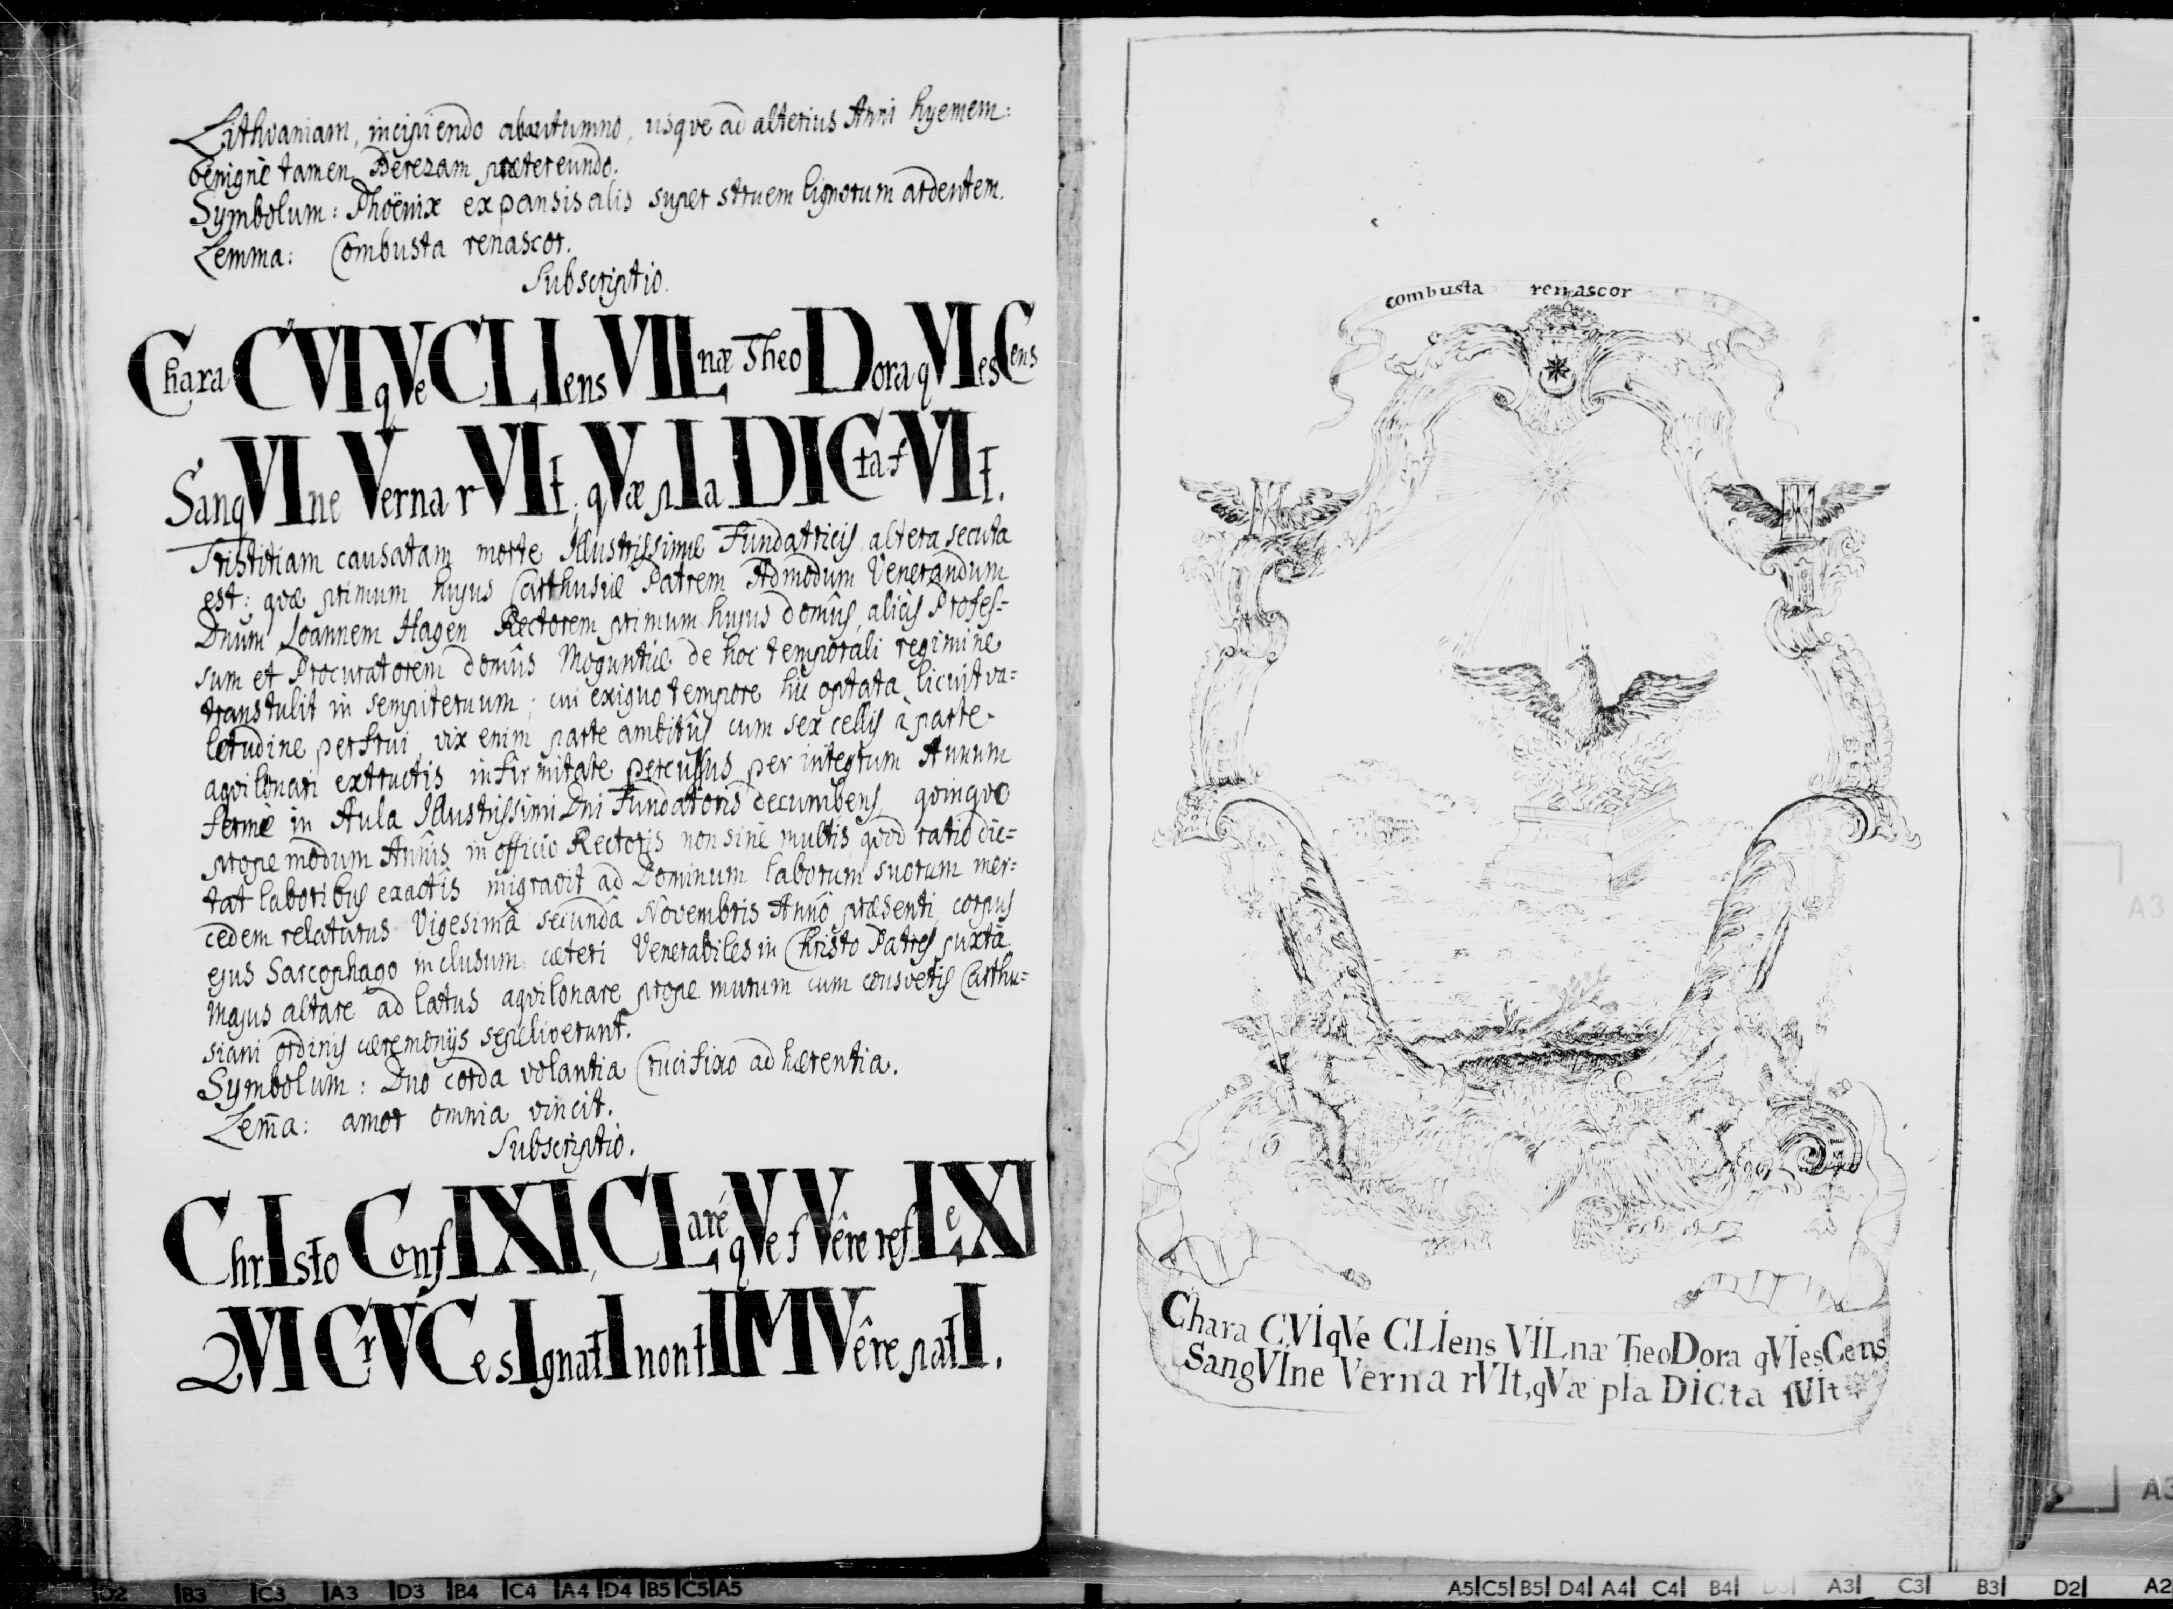 Lithvaniam, incipiendo ab autumno, usqve ad alterius Anni hyemem:
benignè tamen Berezam prætereundo.
Symbolum: Phoënix expansis alis super struem lignorum ardentem.
Lemma: Combusta renascor.
Subscriptio.
Chara CVIqVe CLIens VILnæ TheoDora qVIesCens
SanqVIne Verna rVIt, qVæ pIa DICta fVIt.
Tristitiam causatam morte Illustrissimæ Fundatricis altera secuta
est: qvæ primum hujus Carthusiæ Patrem Admodum Venerandum
Dnum Joannem Hagen Rectorem primum hujus domûs, aliàs Profes=
sum et Procuratorem domûs Moguntiæ de hoc temporali regimine
transtulit in sempiternum; cui exiguo tempore hic optata licuit va=
letudine perfrui, vix enim parte ambitûs cum sex cellis à parte
aqvilonari extructis infirmitate percussus per integrum Annum
fermè in Aula Illustrissimi Dni Fundatoris decumbens, qvinqve
prope modum Annis in officio Rectoris non sinè multis qvod ratio dic=
tat laboribus exactis migravit ad Dominum laborum suorum mer=
cedem relaturus Vigesimâ secundâ Novembris Annô præsenti, corpus
ejus Sarcophago inclusum cæteri Venerabiles in Christo Patres juxta
majus altare ad latus aqvilonare prope murum cum consvetis Carthu=
siani ordinis cæremonijs sepeliverunt.
Symbolum: Duo corda volantia Crucifixo adhærentia.
Lem̄a: amor omnia vincit.
Subscriptio.
ChrIsto ConfIXI, CLarè qVe fVêre refLeXI
QVI CrVCe sIgnatI non tIMVêre patI.
combusta renascor
Chara CVIqVe CLIens VILnæ TheoDora qVIesCens
SangVIne Verna rVIt, qVæ pIa DICta fVIt